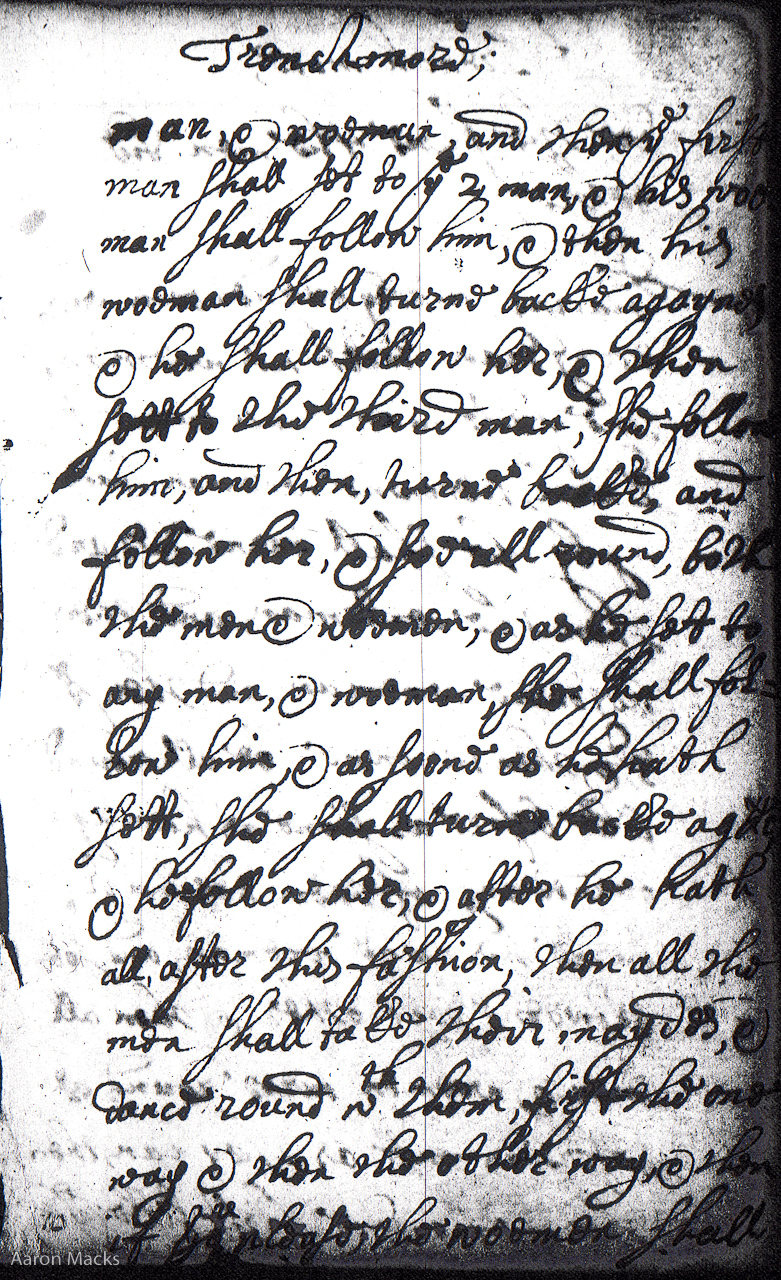 Trenchmord;
man, & woeman, and then ye first
man shall sett to ye 2 man, & his woo
man shall follow him, & then his
woeman shall turne backe agayne,
& he shall follow her, & then
sett to the third man, she follow
him, and then, turne backe, and
follow her, & soe all round, both
the men & woemen, & as he sett to
any man, & woeman, she shall fol=
low him, & as soone as he hath
sett, she shall turne backe
& he follow her, & after he hath
all, after this fashion, then all the
men shall take their maydes, &
dance round wth them, first the one
way & then the other way, & then
if the woemen shall
Aaron Macks